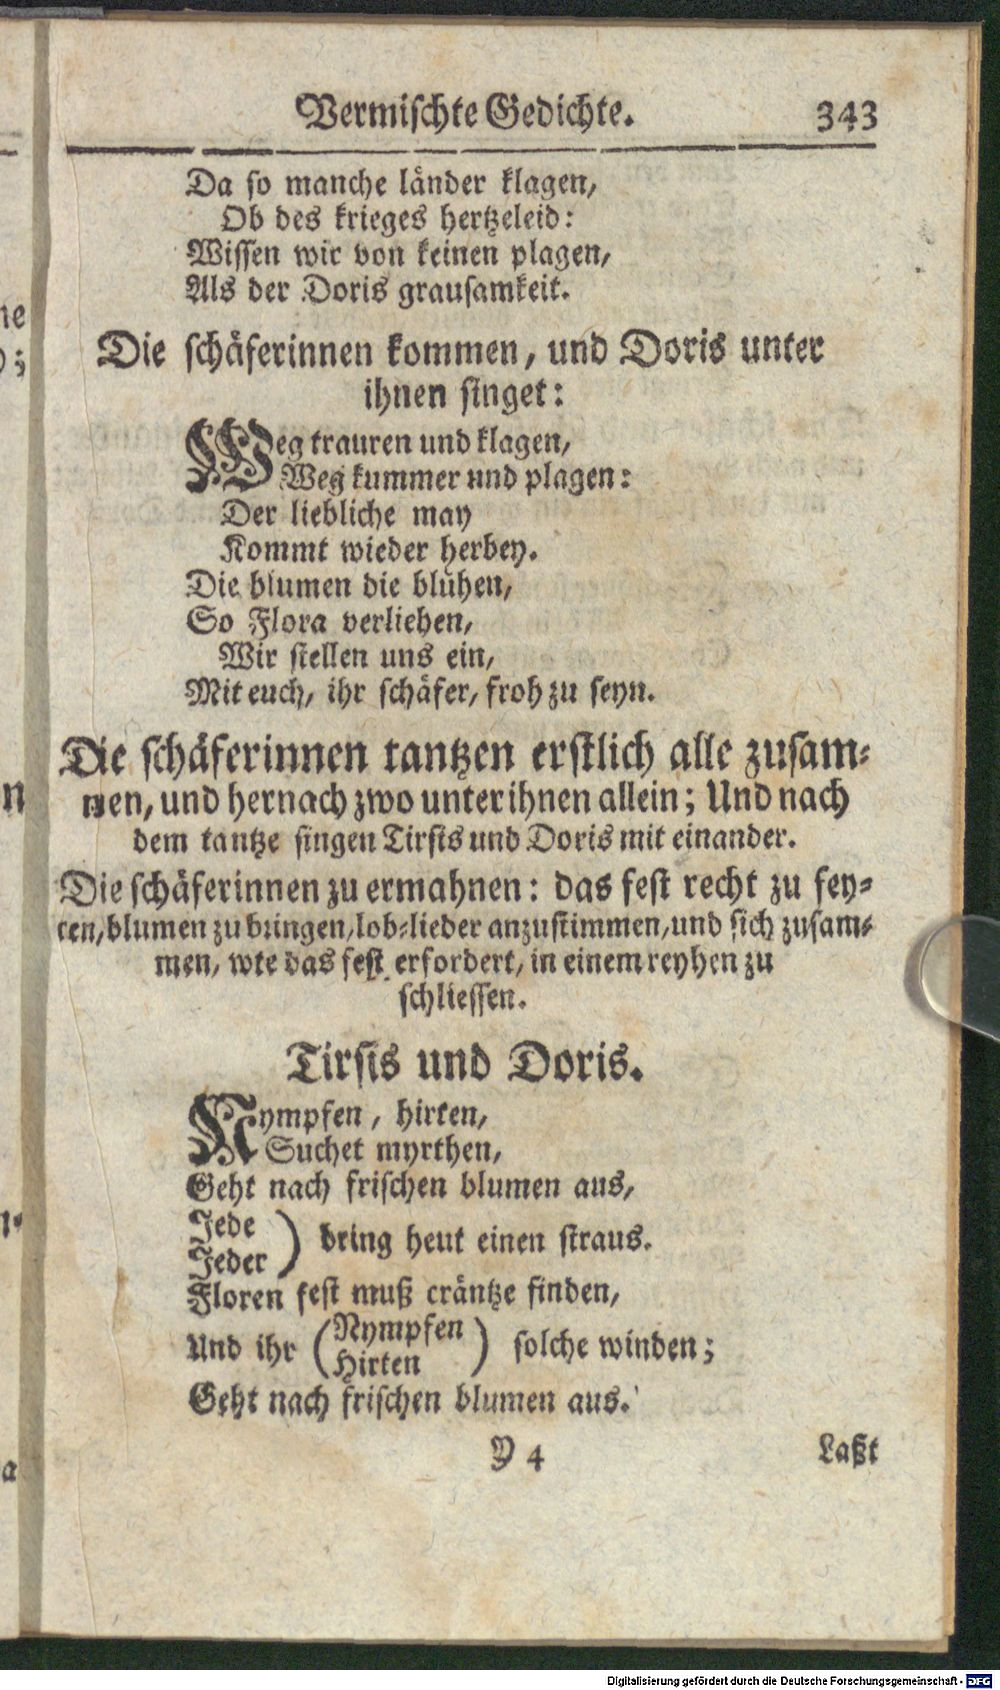 Vermischte Gedichte. 343
Da so manche länder klagen,
Ob des krieges hertzeleid:
Wissen wir von keinen plagen,
Als der Doris grausamkeit.
Die schäferinnen kommen, und Doris unter
ihnen singet:
Weg trauren und klagen,
Weg kummer und plagen:
Der liebliche may
Kommt wieder herbey.
Die blumen die blühen,
So Flora verliehen,
Wir stellen uns ein,
Mit euch, ihr schäfer, froh zu seyn.
Die schäferinnen tantzen erstlich alle zusam-
men, und hernach zwo unter ihnen allein; Und nach
dem tantze singen Tirsis und Doris mit einander.
Die schäferinnen zu ermahnen: das fest recht zu fey-
ren, blumen zu bringen, lob-lieder anzustimmen, und sich zusam-
men, wie das fest erfordert, in einem reyhen zu
schliessen.
Tirsis und Doris.
Nympfen, hirten,
Suchet myrthen,
Geht nach frischen blumen aus,
Jede
Jeder ) bring heut einen straus.
Floren fest muß cräntze finden,
Und ihr (Nympfen
Hirten ) solche winden;
Geht nach frischen blumen aus.
Y 4 Laßt
Digitalisierung gefördert durch die Deutsche Forschungsgemeinschaft - DFG